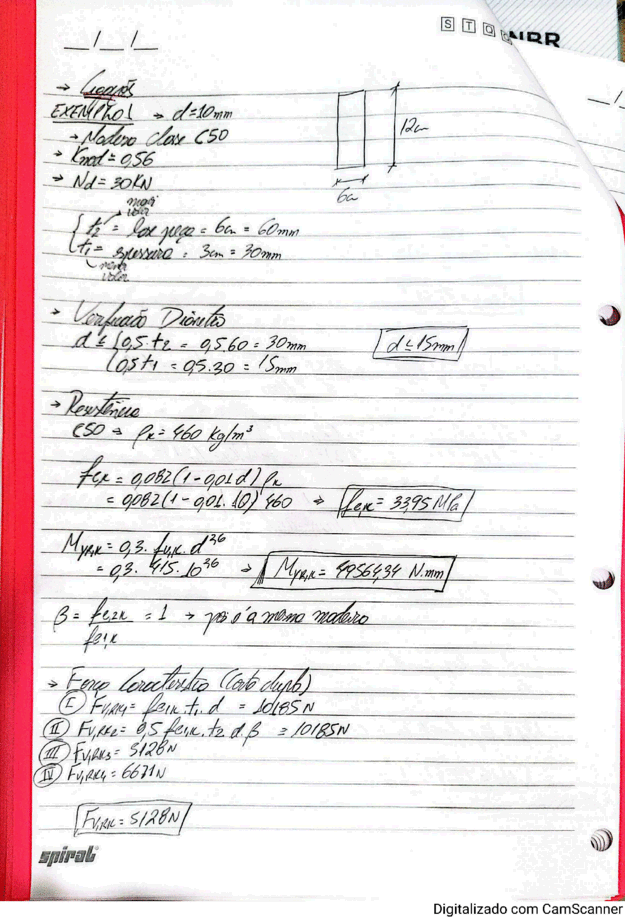 S T Q Q NBR
__/__/__
→ Ligações
EXEMPLO 1 → d=10mm
→ Madeira Classe C50
→ Kmod = 0,56
→ Nd = 30KN
12cm
6cm
maior valor
t2 = lase peça = 6cm = 60mm
t1 = espessura = 3cm = 30mm
menor valor
→ Verificação Diâmetro
d ≤ { 0,5.t2 = 0,5.60 = 30mm
0,5t1 = 0,5.30 = 15mm
d ≤ 15mm
→ Resistência
C50 → ρk = 460 Kg/m³
fe,k = 0,082(1-0,01d) ρk
= 0,082(1-0,01.10) 460 → fe,k = 33,95 MPa
My,R,K = 0,3. fu,k. d^2,6
= 0,3. 415. 10^2,6 → My,R,K = 49564,34 N.mm
β = fe2k / fe1k = 1 → pois é a mesma madeira
→ Força Característica (Corte duplo)
I Fv,RK1 = fe1k. t1. d = 10185N
II Fv,RK2 = 0,5 fe1k. t2 d β = 10185N
III Fv,RK3 = 5128N
IV Fv,RK4 = 6671N
Fv,RK = 5128N
spiral
Digitalizado com CamScanner